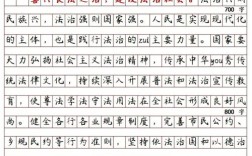 700字
民族兴，法治强则国家强。人民是实现现代化
的主体，也是践行法治的zui主要力量。国家要
大力弘扬社会主义法治精神，传承中华you秀传
统法律文化，持续深入开展普法和法治宣传教
育，使尊法学法守法用法在全社会形成良好风
800字
尚。健全各行各业规章制度，完善市民公约、
乡规民约等行为准则，坚持依法治国和以德治